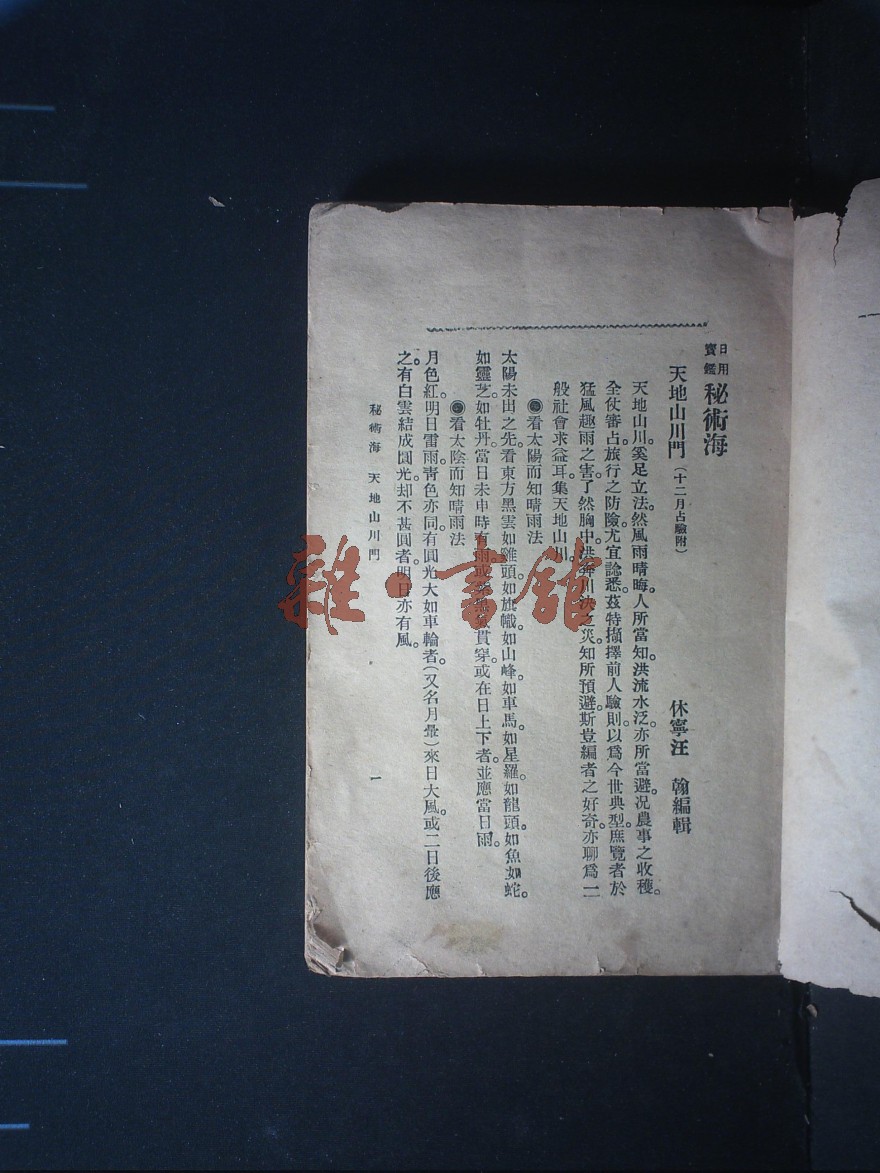 日用寶鑑 秘術海
天地山川門(十二月占驗附)
休寧汪 翰編輯
天地山川。奚足立法。然風雨晴晦。人所當知。洪流水泛。亦所當避。况農事之收穫。
全仗審占。旅行之防險。尤宜諗悉。茲特擷擇前人驗則。以爲今世典型。庶覽者於
猛風趣雨之害。了然胸中。洪奔川決之災。知所預避。斯豈編者之好奇。亦聊爲一
般社會求益耳。集天地山川。
◉看太陽而知晴雨法
太陽未出之先。看東方黑雲如雞頭。如旗幟。如山峰。如車馬。如星羅。如龍頭。如魚如蛇。
如靈芝。如牡丹。當日未申時有雨。或 黑氣貫穿。或在日上下者。並應當日雨。
◉看太陰而知晴雨法
月色紅。明日雷雨。靑色亦同。有圓光大如車輪者(又名月暈)來日大風。或二日後應
之。有白雲結成圓光。却不甚圓者。明日亦有風。
秘術海 天地山川門
一
雜·書館